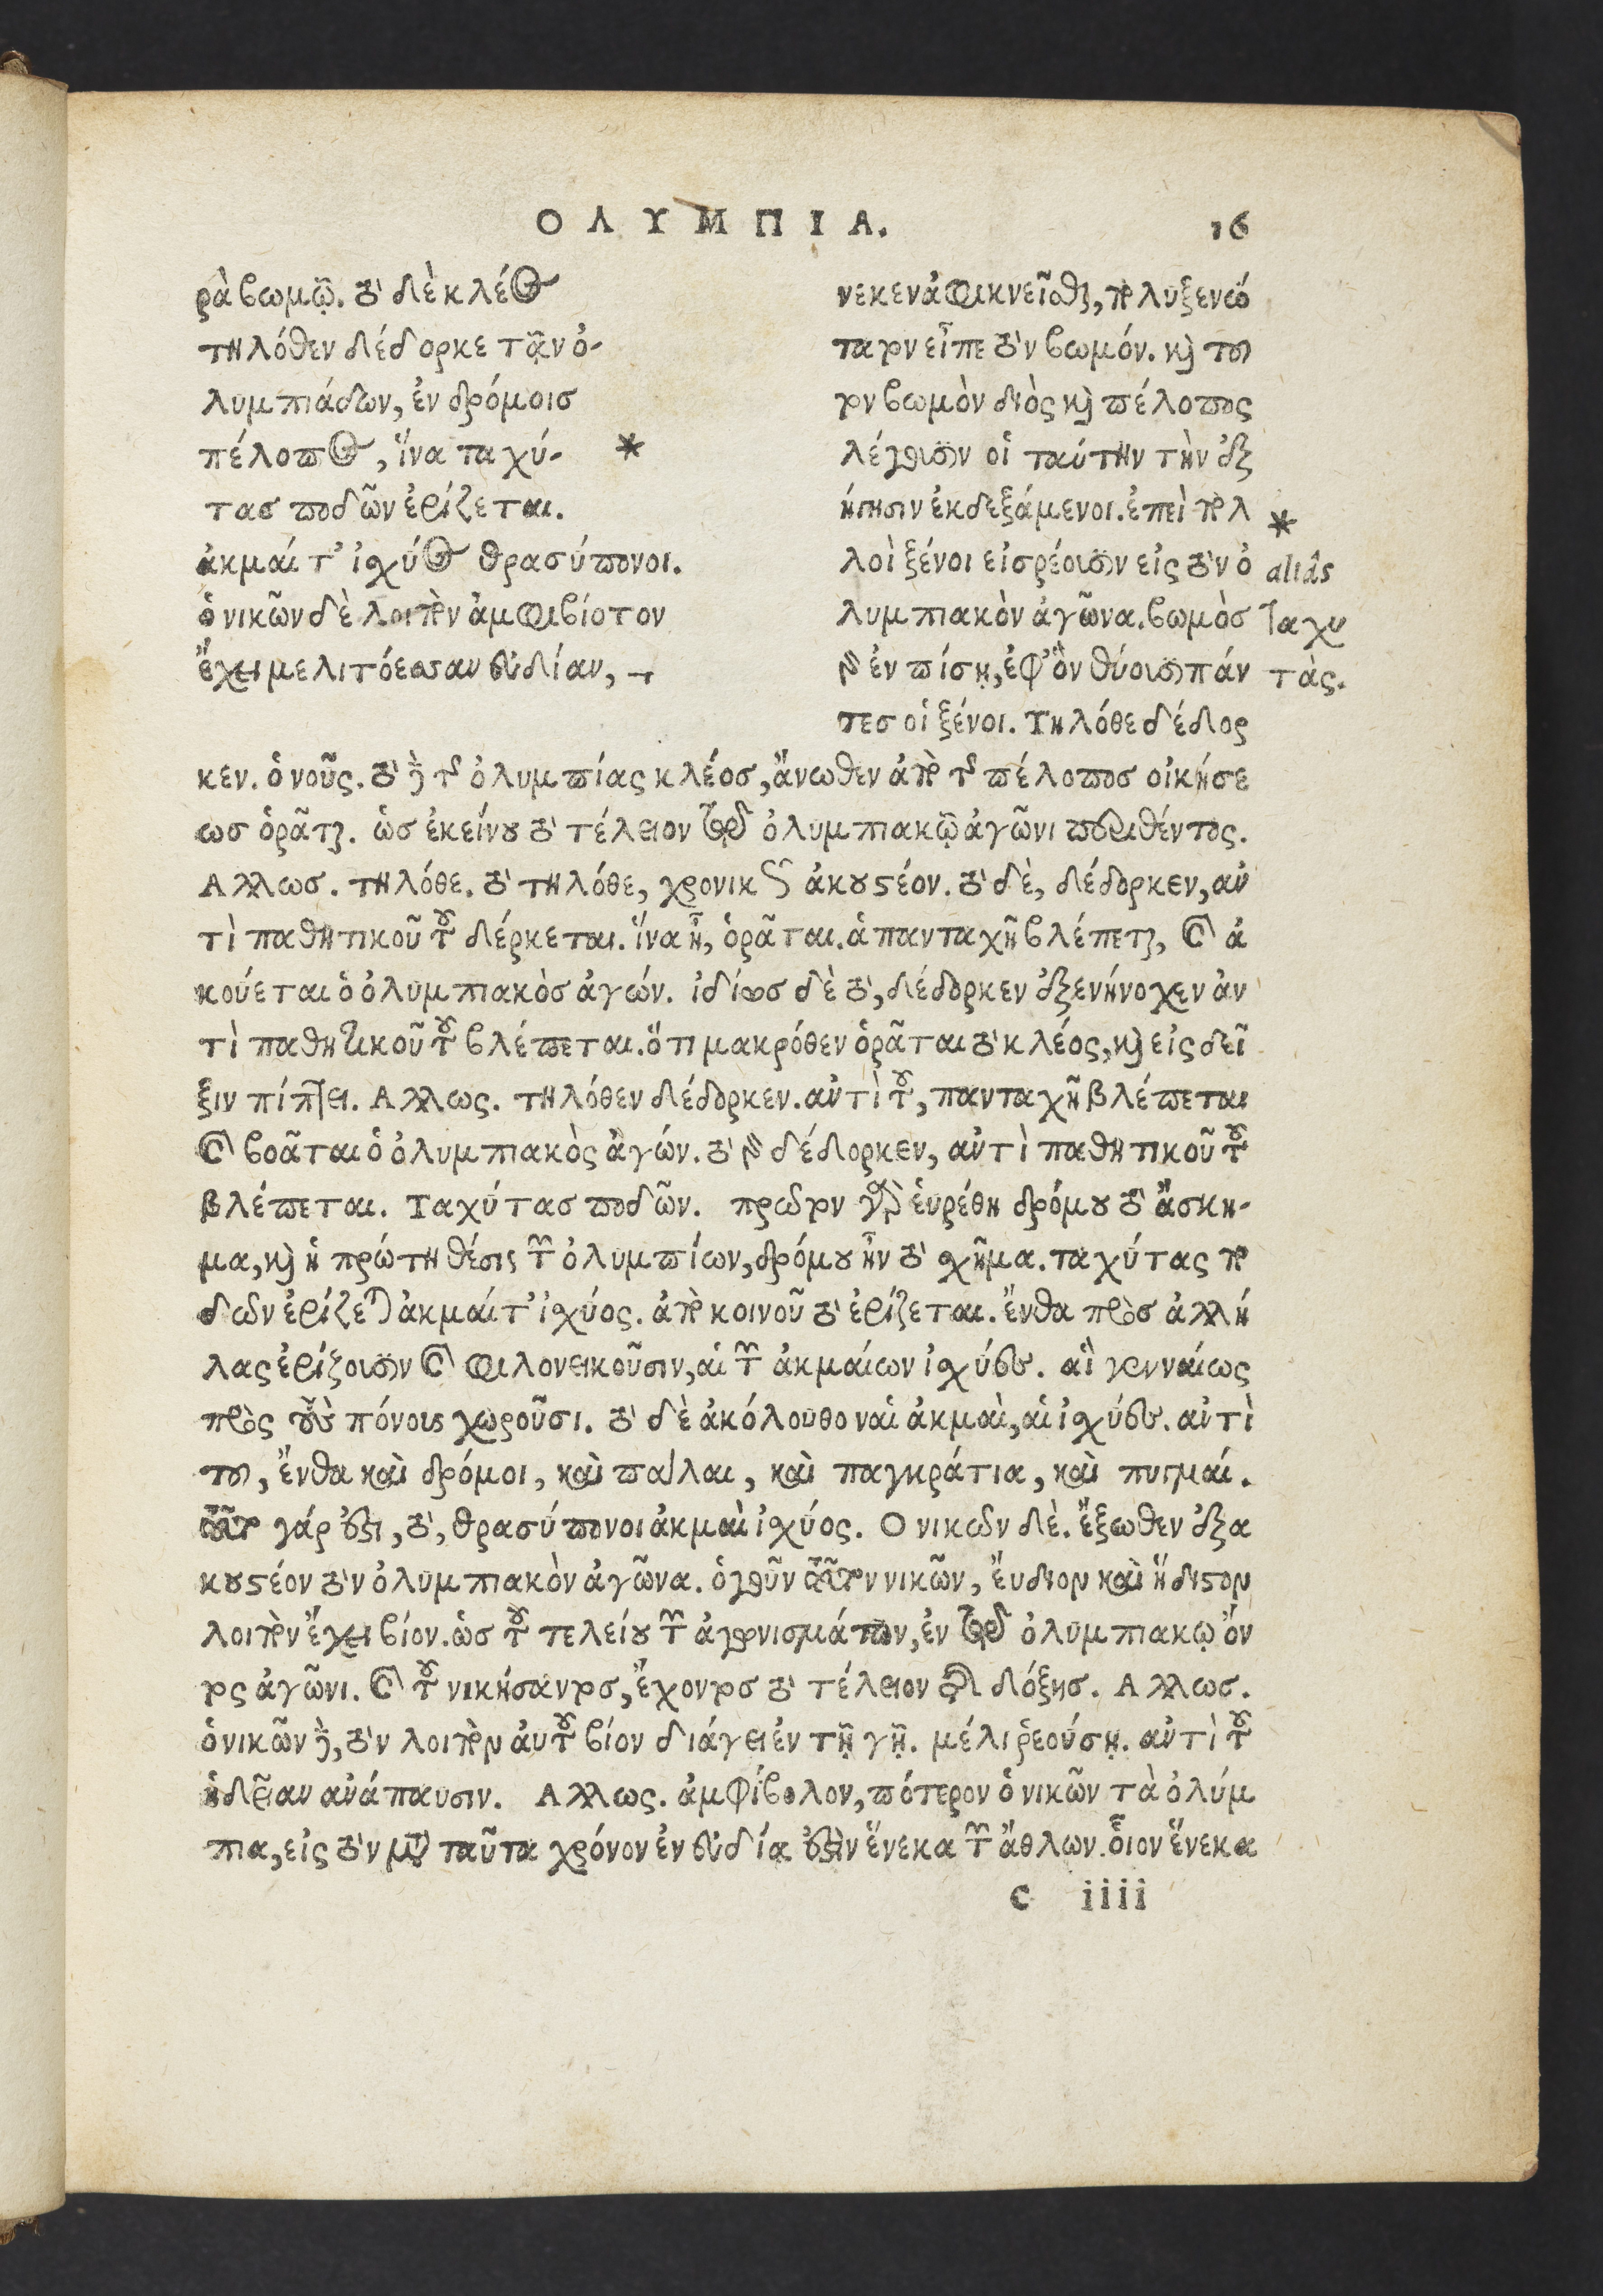 ΟΛΥΜΠΙΑ. 16
ρὰ βωμῷ. τὸ δὲ κλέος
τηλόθεν δέδορκε τᾶν ὀ-
λυμπιάδων, ἐν δρόμοισ
πέλοπος, ἵνα ταχύ- *
τασ ποδῶν ἐρίζεται.
ἀκμαί τ' ἰσχύος θρασύπονοι.
ὁ νικῶν δὲ λοιπὸν ἀμφιβίοτον
ἔχει μελιτόεσσαν εὐδίαν, ⊣
νεκεν ἀφικνεῖσθαι, πολυξενώ
τατον εἶπε τὸν βωμόν. καὶ του
τον βωμὸν διὸς καὶ πέλοπος
λέγουσιν οἱ ταύτην τὴν ἐξ
ήγησιν ἐκδεξάμενοι. ἐπεὶ πολ
λοὶ ξένοι εἰσρέουσιν εἰς τὸν ὀ
λυμπιακὸν ἀγῶνα. βωμὸσ
δὲ ἐν πίσῃ, ἐφ' ὃν θύουσι πάν
τεσ οἱ ξένοι. Τηλόθε δέδορ
*
aliâs
ταχυ
τὰς.
κεν. ὁ νοῦς. τὸ δὲ τῆς ὀλυμπίας κλέοσ, ἄνωθεν ἀπὸ τῆς πέλοποσ οἰκήσε
ωσ ὁρᾶται. ὡσ ἐκείνου τὸ τέλειον τῷ ὀλυμπιακῷ ἀγῶνι περιθέντος.
Αλλωσ. τηλόθε. τὸ τηλόθε, χρονικῶς ἀκουστέον. τὸ δὲ, δέδορκεν, ἀν
τὶ παθητικοῦ τοῦ δέρκεται. ἵνα ᾖ, ὁρᾶται. ἁπανταχῆ βλέπεται, καὶ ἀ
κούεται ὁ ὀλυμπιακὸσ ἀγών. ἰδίωσ δὲ τὸ, δέδορκεν ἐξενήνοχεν ἀν
τὶ παθητικοῦ τοῦ βλέπεται. ὅτι μακρόθεν ὁρᾶται τὸ κλέος, καὶ εἰς δεῖ
ξιν πίπτει. Αλλως. τηλόθεν δέδορκεν. ἀντὶ τοῦ, πανταχῆ βλέπεται
καὶ βοᾶται ὁ ὀλυμπιακὸς ἀγών. τὸ δὲ δέδορκεν, ἀντὶ παθητικοῦ τοῦ
βλέπεται. Ταχύτασ ποδῶν. πρῶτον γὰρ εὑρέθη δρόμου τὸ ἄσκη-
μα, καὶ ἡ πρώτη θέσις τῶν ὀλυμπίων, δρόμου ἦν τὸ σχῆμα. ταχύτας πο
δῶν ἐρίζεται ἀκμαί τ' ἰσχύος. ἀπὸ κοινοῦ τὸ ἐρίζεται. ἔνθα πρὸσ ἀλλή
λας ἐρίζουσιν καὶ φιλονεικοῦσιν, αἱ τῶν ἀκμαίων ἰσχύες. αἳ γενναίως
πρὸς τοὺς πόνους χωροῦσι. τὸ δὲ ἀκόλουθον αἱ ἀκμαὶ, αἱ ἰσχύες. ἀντὶ
του, ἔνθα καὶ δρόμοι, καὶ πάλαι, καὶ παγκράτια, καὶ πυγμαί.
γάρ ἐστι, τὸ, θρασύπονοι ἀκμαὶ ἰσχύος. Ο νικῶν δὲ. ἔξωθεν ἐξα
κουστέον τὸν ὀλυμπιακὸν ἀγῶνα. ὁ γοῦν νικῶν, εὔδιον καὶ ἥδιστον
λοιπὸν ἔχει βίον. ὡσ τοῦ τελείου τῶν ἀγωνισμάτων, ἐν τῷ ὀλυμπιακῷ ὄν
τος ἀγῶνι. καὶ τοῦ νικήσαντοσ, ἔχοντοσ τὸ τέλειον τῆς δόξησ. Αλλωσ.
ὁ νικῶν δὲ, τὸν λοιπὸν αὐτοῦ βίον διάγει ἐν τῇ γῇ. μέλι ῥεούσῃ. ἀντὶ τοῦ
ἡδεῖαν ἀνάπαυσιν. Αλλως. ἀμφίβολον, πότερον ὁ νικῶν τὰ ὀλύμ
πια, εἰς τὸν μετὰ ταῦτα χρόνον ἐν εὐδία ἐστὶν ἕνεκα τῶν ἄθλων. οἷον ἕνεκα
c iiii